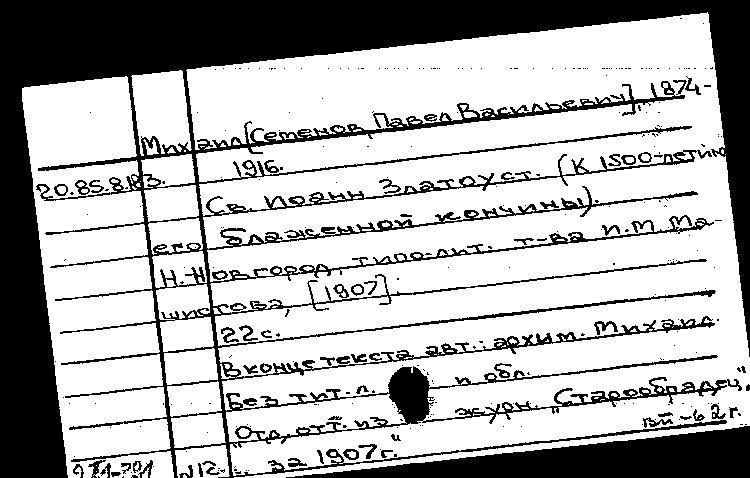 Михаил [Семенов, Павел Васильевич], 1874-
1916.
20.85.8.183.
Св. Иоанн Златоуст. (К 1500-летию
его блаженной кончины).
Н.-Новгород, типо-лит. т-ва И.М. Ма-
шистова, [1907].
22 с.
В конце текста авт.: архим. Михаил.
Без тит. л. и обл.
"Отд. отт. из журн. "Старообрядец",
N12 за 1907г."